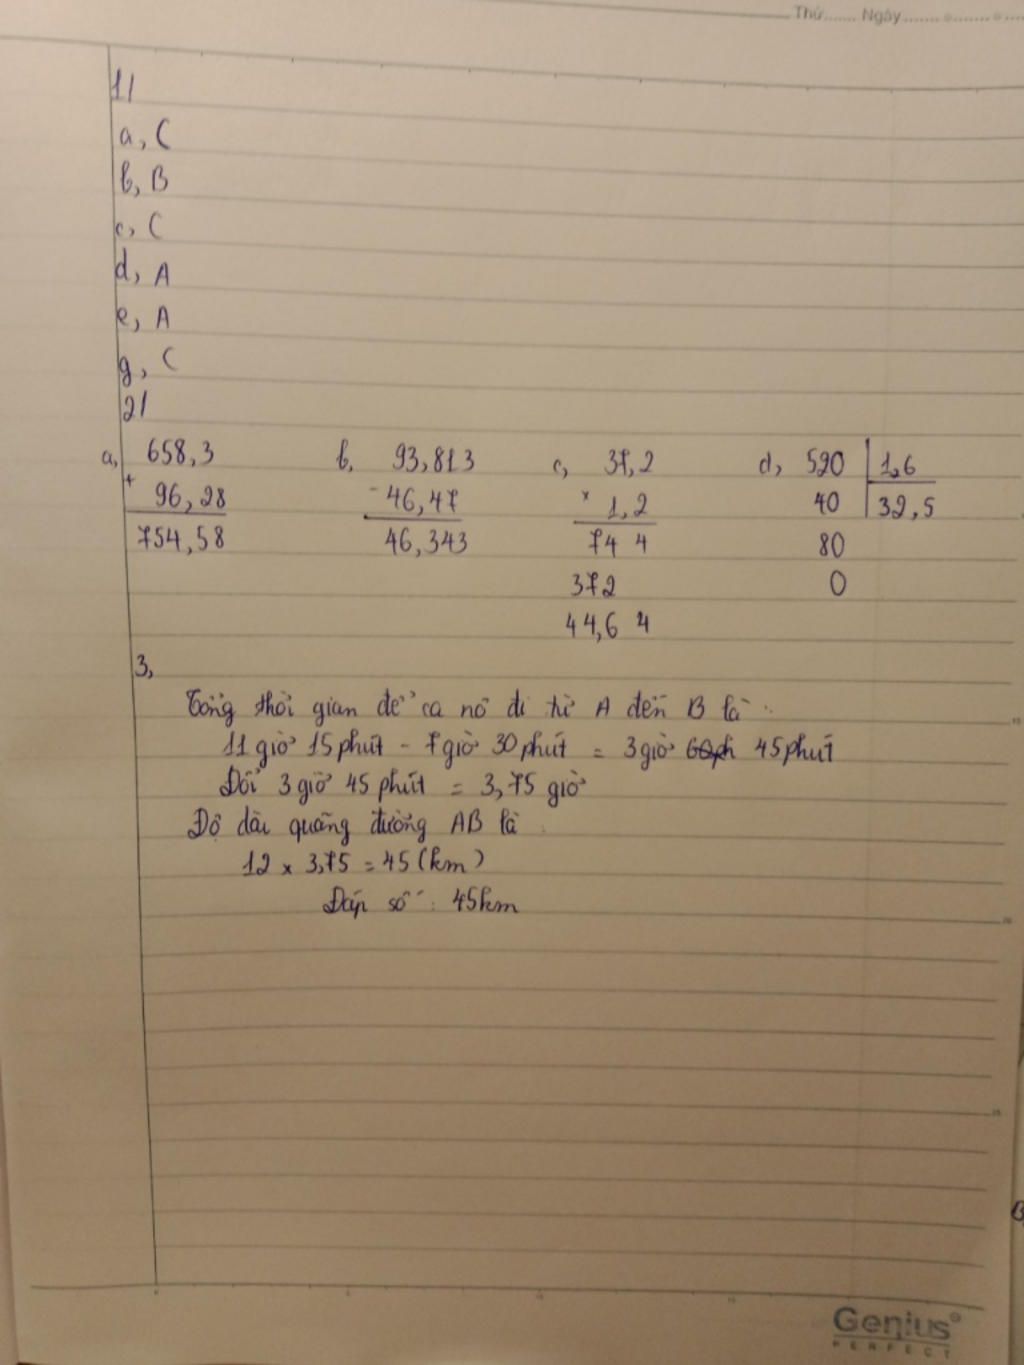 Thứ....... Ngày
1/
a, C
b, B
c, C
d, A
e, A
g, C
2/
a, 658,3 b, 93,813 c, 37,2 d, 520 1,6
+ 96,28 - 46,47 x 1,2 40 32,5
754,58 46,343 74 4 80
372 0
44,6 4
3,
Tổng thời gian để ca nô đi từ A đến B là
11 giờ 15 phút - 7 giờ 30 phút = 3 giờ 45 phút
Đổi 3 giờ 45 phút = 3,75 giờ
Độ dài quãng đường AB là
12 x 3,75 = 45 (km)
Đáp số : 45km
Genius
PERFECT